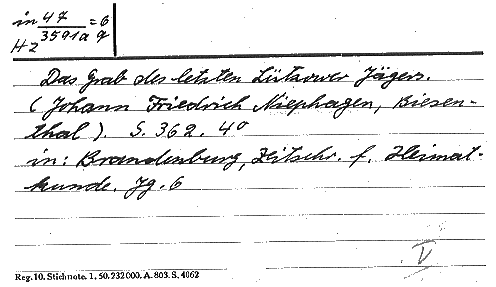 in 47 = 6
3591a 9
Hz
Das Grab des letzten Lützower Jägers.
(Johann Friedrich Niephagen, Biesen-
thal). S. 362. 4°
in: Brandenburg, Zitschr. f. Heimat-
kunde. Jg. 6
V
Reg. 10. Stichnote. 1. 50. 232000. A. 803. S. 4062